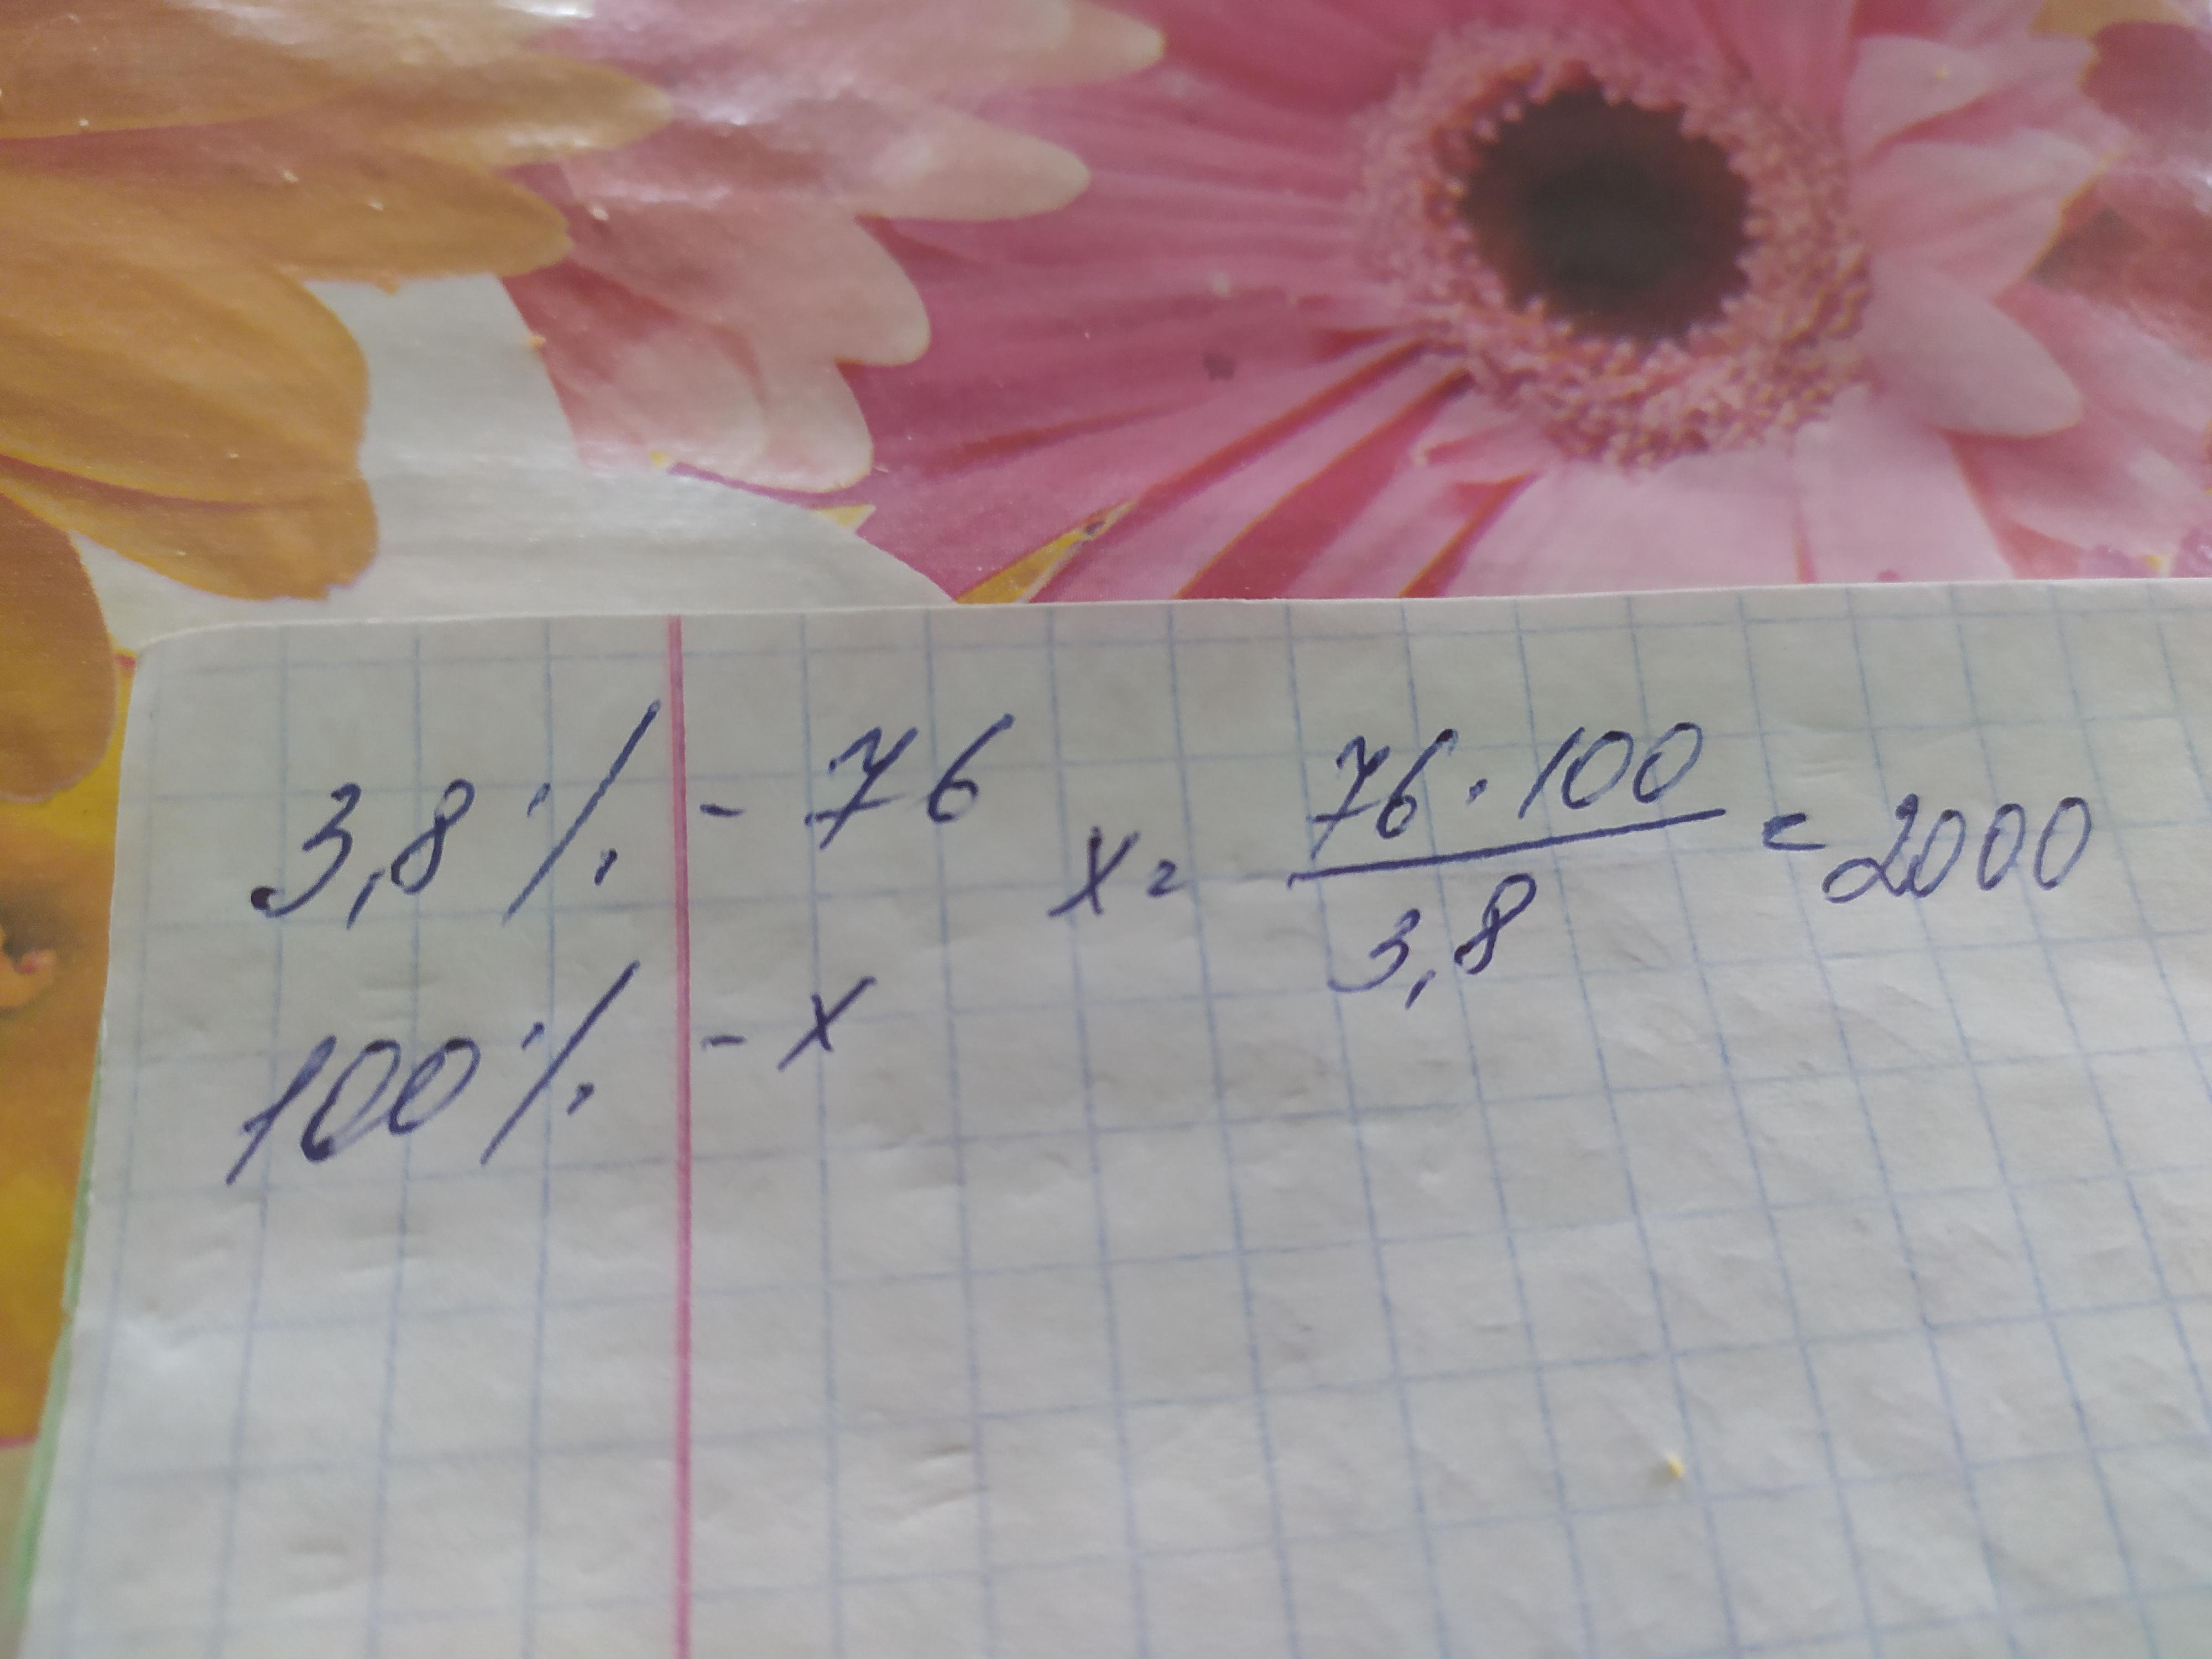 3,8% - 76
100% - x
x = 76·100 / 3,8 = 2000